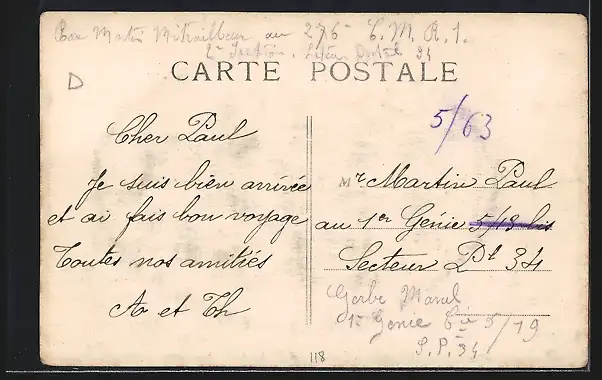 276e C.M.R.1.
2e Section. 34
CARTE POSTALE
D
5/63
Cher Paul
Je suis bien arrivée
et ai fais bon voyage
Toutes nos amitiés
A et Th
Mr Martin Paul
au 1er Génie 5/13 bis
Secteur Pt 34
Gerbe Marcel
1er Genie Cie 5/19
S.P. 34
118